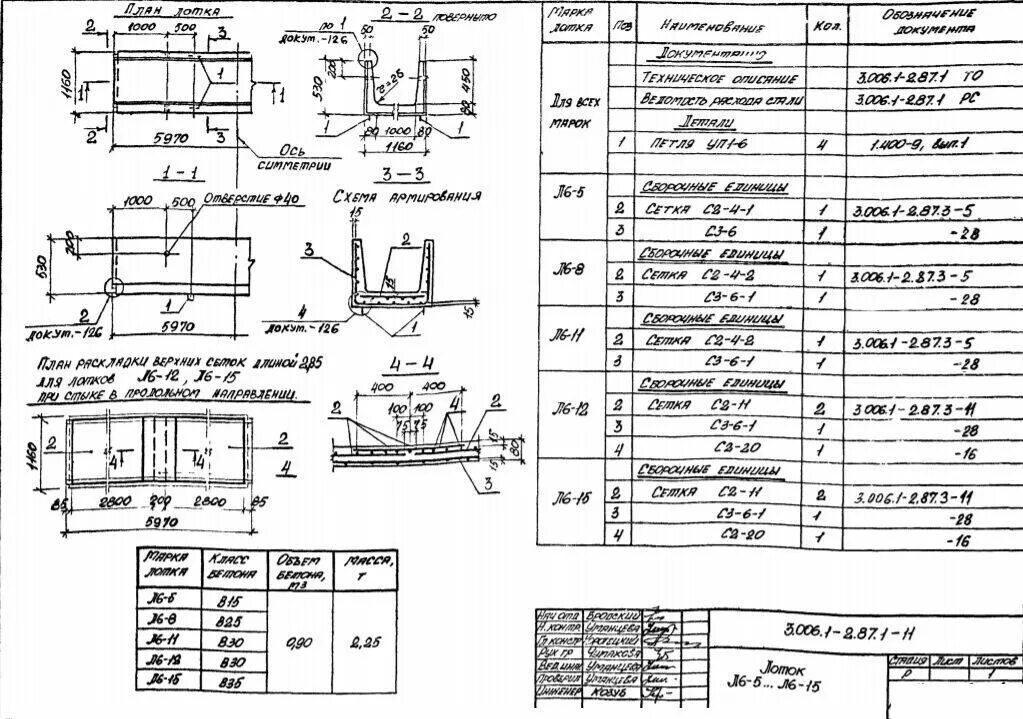 План лотка
2
1000
500
3
1160
1
1
1
2
3
5970
Ось симметрии
2-2 повернуто
по 1
докут.-126
50
50
200
530
R=25
450
80
1
80
1000
80
1
1160
1-1
1000
500
Отверстие Ф40
200
530
2
докут.-126
1
5970
3-3
Схема армирования
15
3
2
15
4
докут.-126
1
15
План раскладки верхних сеток длиной 2,85
для лотков Л6-12, Л6-15
при стыке в продольном направлении
1160
2
4
4
2
4
85
2800
200
2800
85
5970
4-4
400
400
2
100
100
4
2
75
75
15
80
15
3
Марка лотка
Класс бетона
Объем бетона, м3
Масса, т
Л6-5
В15
Л6-8
В25
Л6-11
В30
0,90
2,25
Л6-12
В30
Л6-15
В35
Марка лотка
Поз
Наименование
Кол.
Обозначение документа
Документацию
Техническое описание
3.006.1-2.87.1 ТО
Для всех марок
Ведомость расхода стали
3.006.1-2.87.1 РС
Детали
1
Петля УП1-6
4
1.400-9, вып.1
Л6-5
Сборочные единицы
2
Сетка С2-4-1
1
3.006.1-2.87.3-5
3
С3-6
1
-28
Л6-8
Сборочные единицы
2
Сетка С2-4-2
1
3.006.1-2.87.3-5
3
С3-6-1
1
-28
Л6-11
Сборочные единицы
2
Сетка С2-4-2
1
3.006.1-2.87.3-5
3
С3-6-1
1
-28
Л6-12
Сборочные единицы
2
Сетка С2-11
2
3.006.1-2.87.3-11
3
С3-6-1
1
-28
4
С2-20
1
-16
Л6-15
Сборочные единицы
2
Сетка С2-11
2
3.006.1-2.87.3-11
3
С3-6-1
1
-28
4
С2-20
1
-16
Нач отд
Бродский
Н. контр.
Уманцева
Гл констр
Рук гр
Чипакова
Вед.инж
Уманцева
Проверил
Уманцева
Инженер
Козуб
3.006.1-2.87.1-11
Лоток
Л6-5... Л6-15
Стадия
Лист
Листов
Р
1